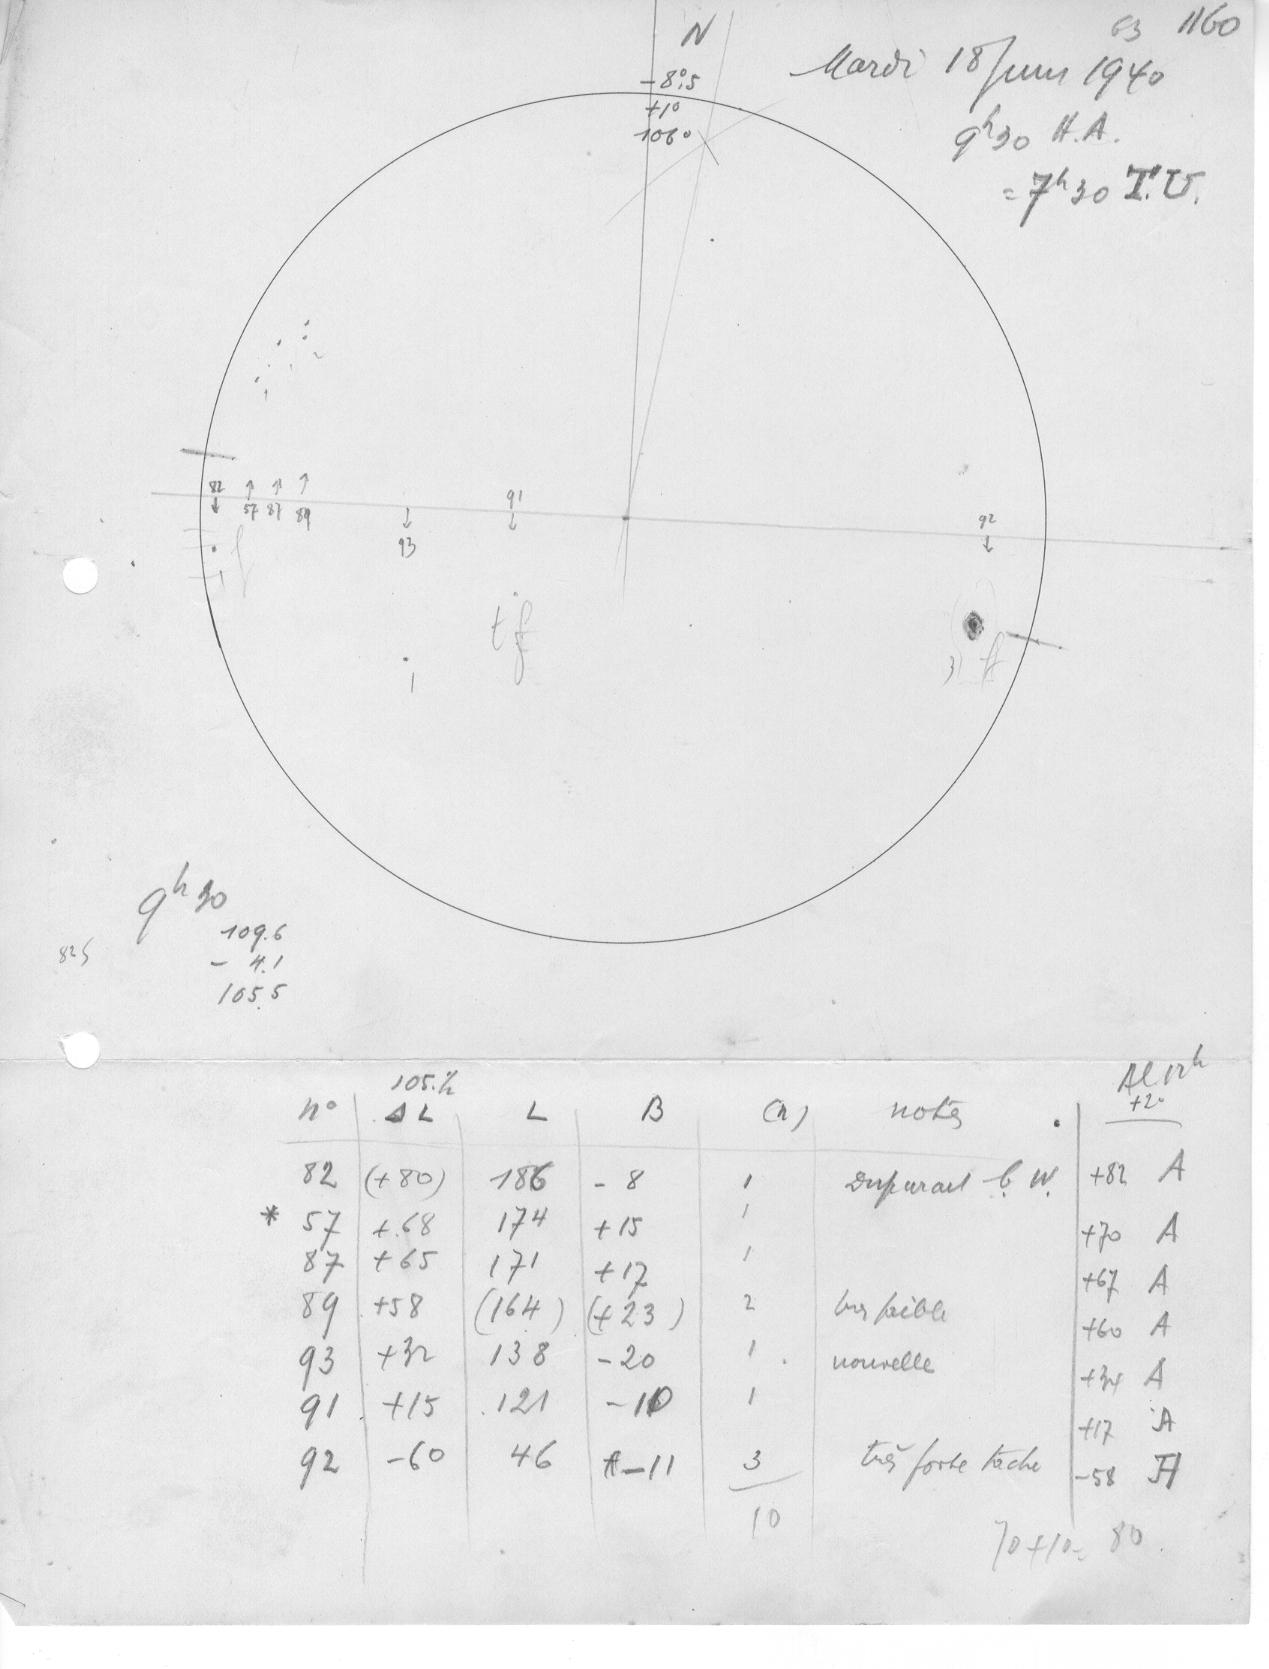 63 1160
Mardi 18 Juin 1940
9h30 H.A.
= 7h30 T.U.
N
-8°,5
+1°
106°
82 57 87 89
93
91
92
f
tf
9h30
109.6
- 4.1
105.5
825
105.½
n° ΔL L B (n) notes +2°
82 (+80) 186 - 8 1 Disparait b. W. +82 A
* 57 +68 174 +15 1 +70 A
87 +65 171 +17 1 +67 A
89 +58 (164) (+23) 2 très faible +60 A
93 +32 138 -20 1 nouvelle +34 A
91 +15 121 -10 1 +17 A
92 -60 46 -11 3 très forte tache -58 H
10
70+10= 80